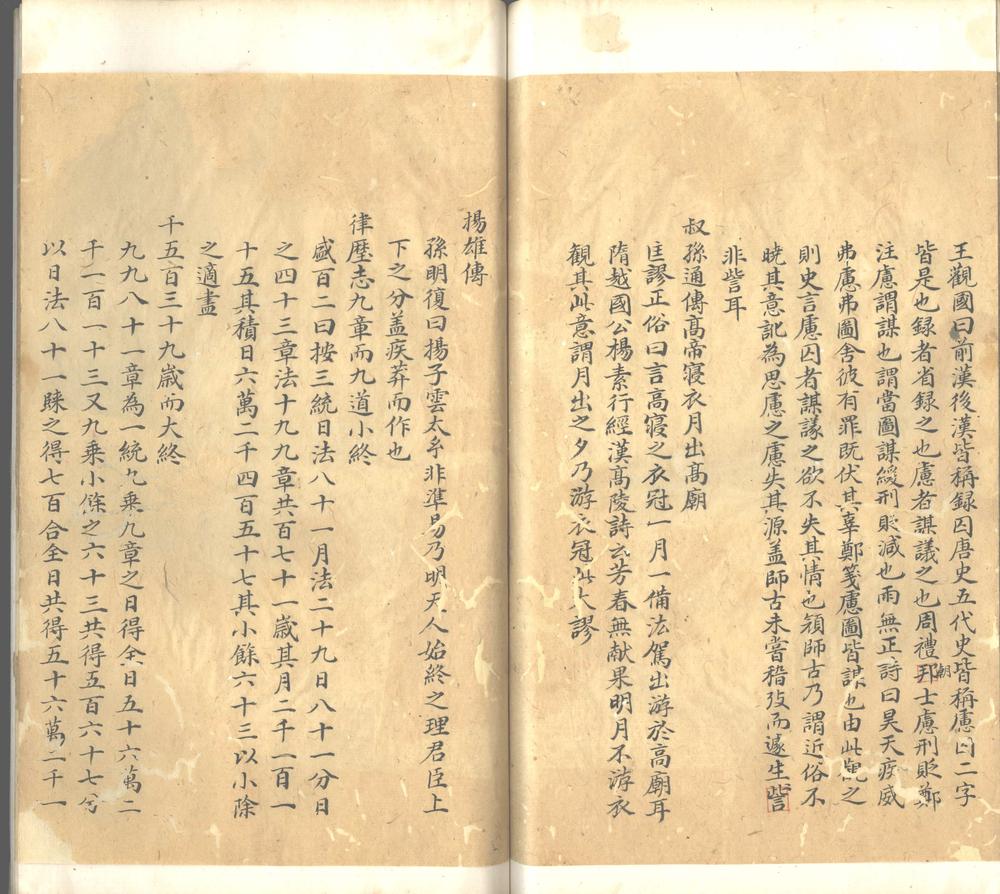 王觀國曰前漢後漢皆稱録囚唐史五代史皆稱慮囚二字
皆是也録者省録之也慮者謀議之也周禮邦朝士慮刑貶鄭
注慮謂謀也謂當圖謀緩刑貶減也雨無正詩曰昊天疾威
弗慮弗圖舍彼有罪既伏其辜鄭箋慮圖皆謀也由此觀之
則史言慮囚者謀議之欲不失其情也顔師古乃謂近俗不
曉其意訛為思慮之慮失其源盖師古未嘗稽攷而遽生訾
非訾耳
叔孫通傳高帝寢衣月出高廟
匡謬正俗曰言高寢之衣冠一月一備法駕出游於高廟耳
隋越國公楊素行經漢高陵詩云芳春無献果明月不游衣
観其此意謂月出之夕乃游衣冠此大謬
揚雄傳
孫明復曰揚子雲太乎非準易乃明天人始終之理君臣上
下之分盖疾莽而作也
律歴志九章而九道小終
盛百二曰按三統日法八十一月法二十九日八十一分日
之四十三章法十九九章共百七十一歳其月二千一百一
十五其積日六萬二千四百五十七其小餘六十三以小除
之適盡
千五百三十九歳而大終
九九八十一章為一統九乘九章之日得全日五十六萬二
千一百一十三又九乘小餘之六十三共得五百六十七分
以日法八十一䀹之得七百合全日共得五十六萬二千一